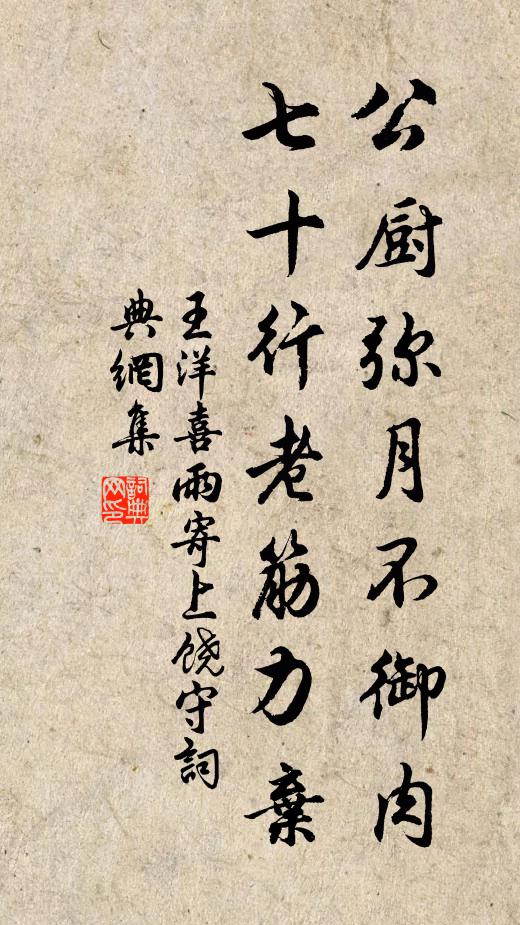 公厨弥月不御肉
七十行老筋力棄
王洋喜雨寄上饶守詞
典網集
詞典网印